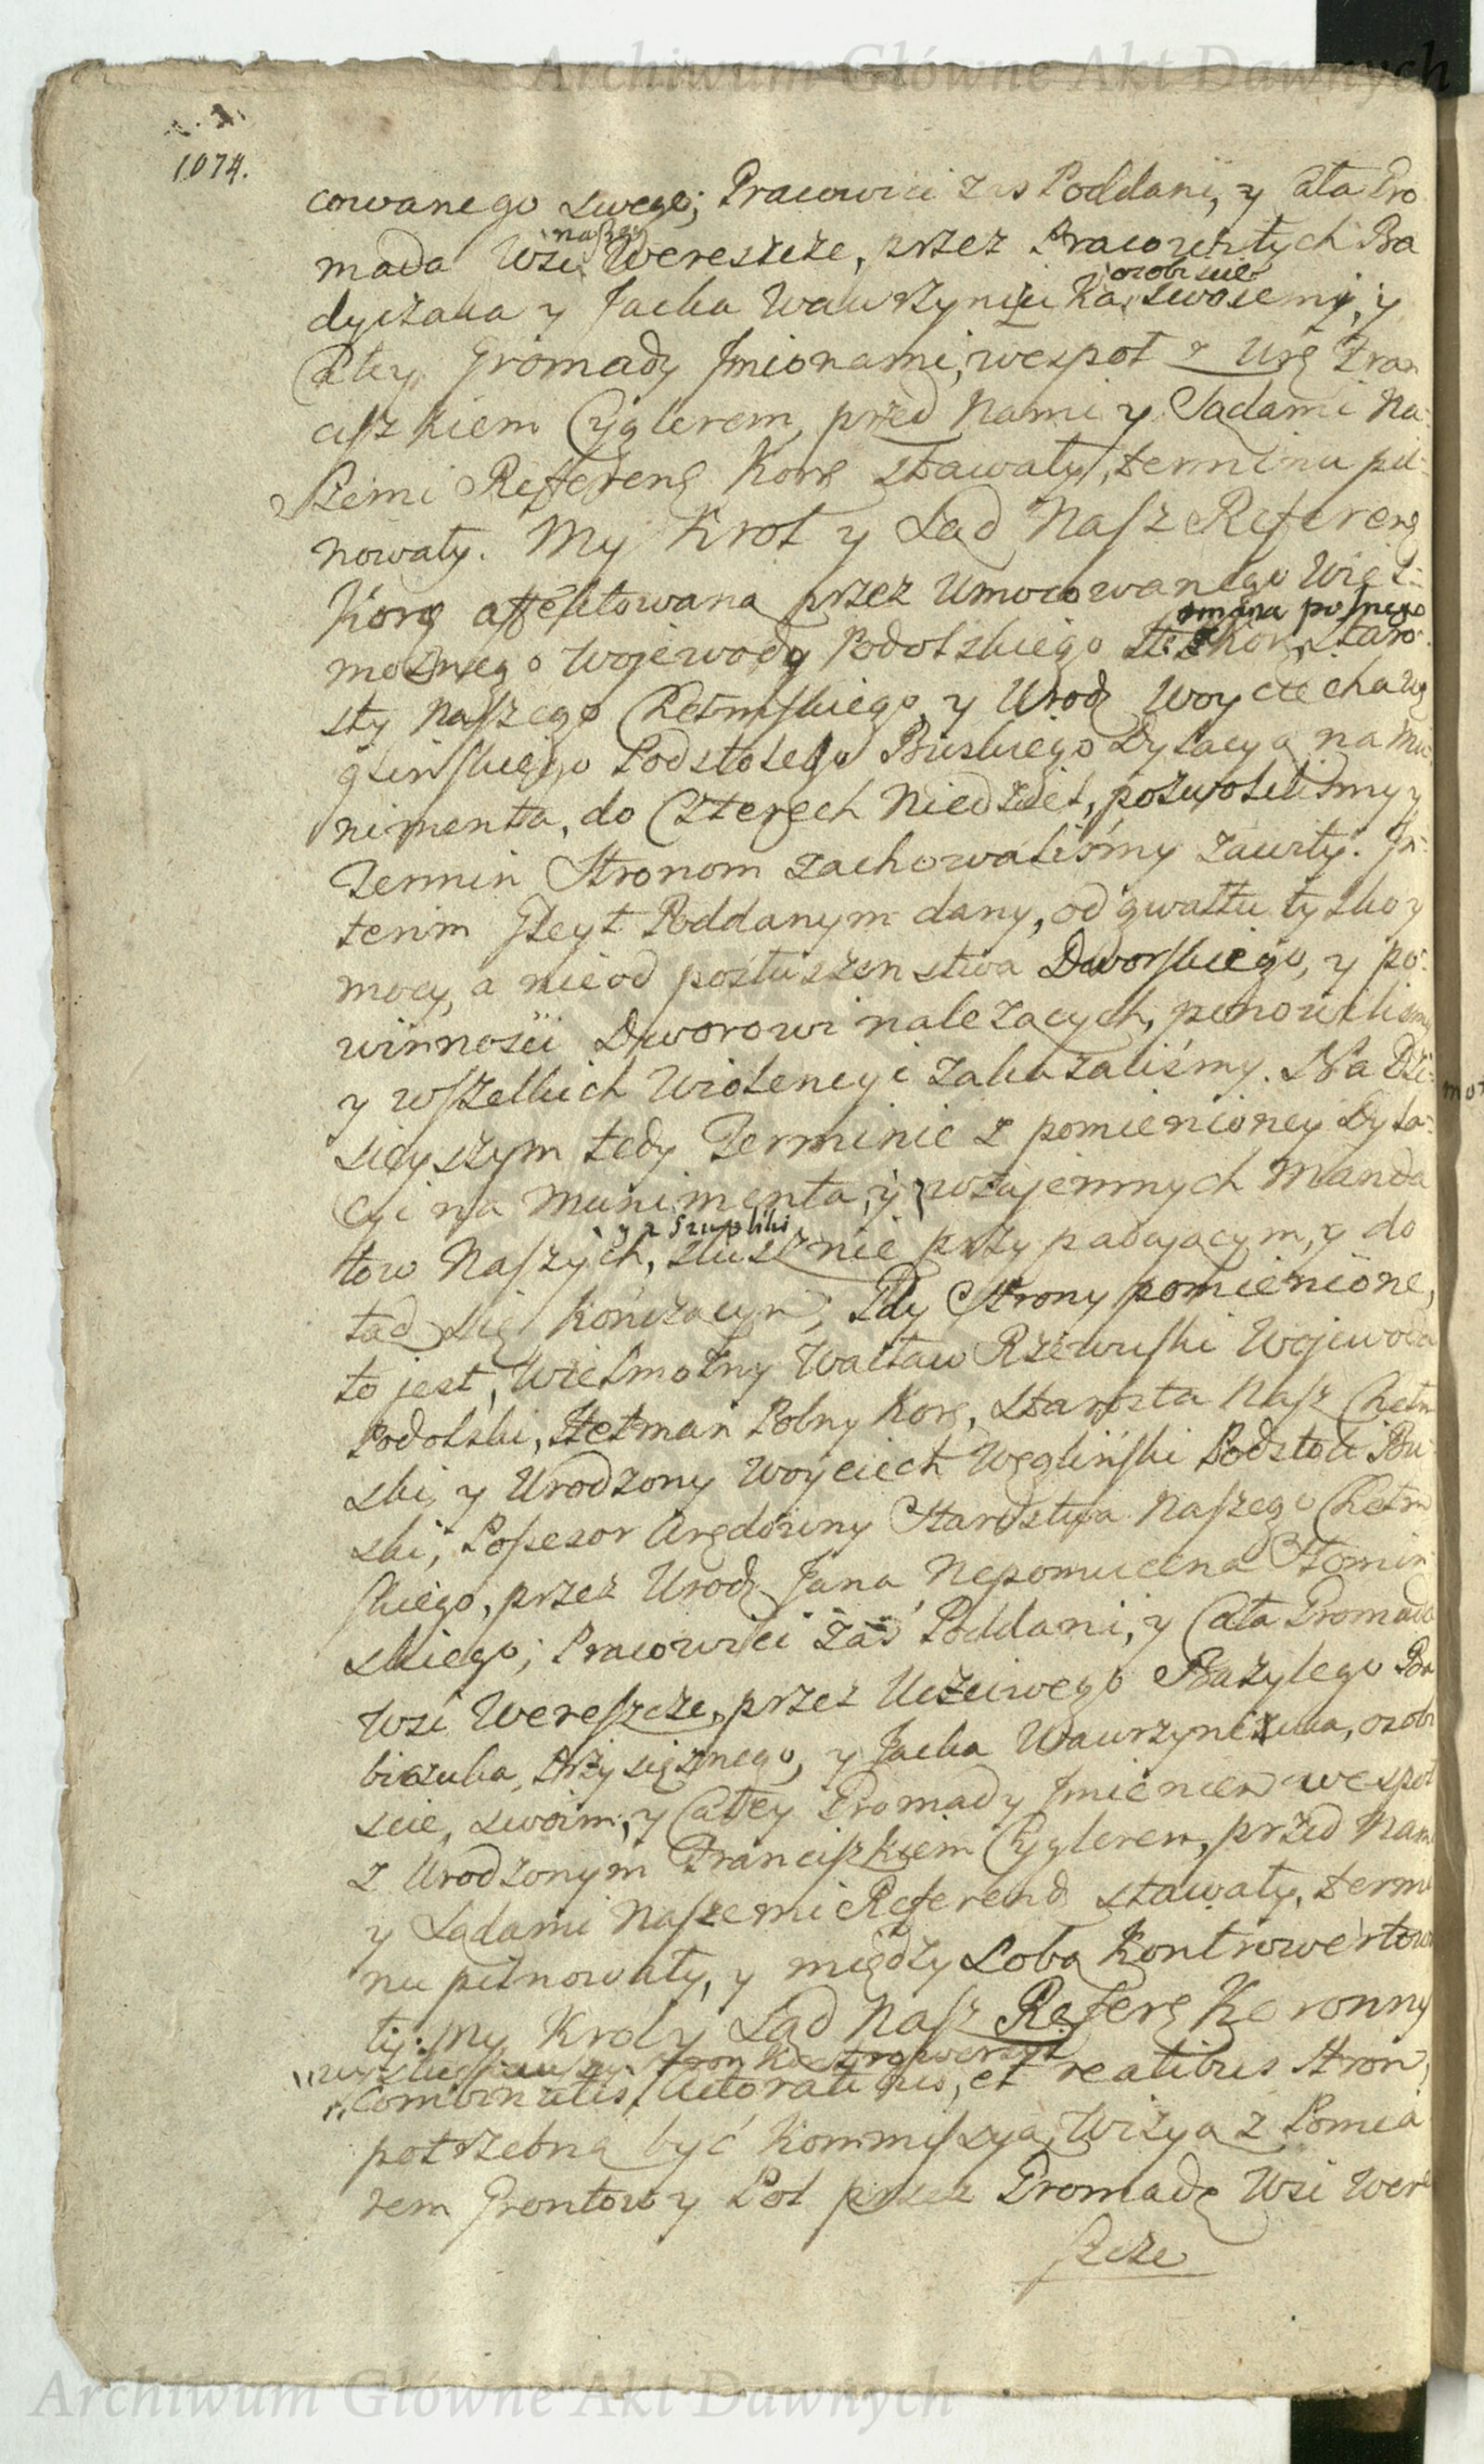 Archiwum Główne Akt Dawnych
1074.
cowanego swego; Pracowici zas Poddani, y Cała Gro
mada Wsi naszey Wereszcze, przez Pracowitych Ba
dyczaka y Jacka Wawrzyniuka, osobiscie swoiemi, y
Całey Gromady Jmionami, wespoł z Urg Fran
ciszkiem Cyglerem, przed Nami y Sądami Na:
szemi Reffereng Korg stawały, terminu pil:
nowały. My Krol y Sąd Nasz Refereng
Korg affektowaną przez Umocowanego Wiel:
możnego Wojewody Podolskiego Hetmana polnego Kor, Staro:
sty Naszego Chełmskiego, y Urodz Woyciecha Wę
glinskiego Podstolego Buskiego Dylacyą na Mu:
nimenta, do Czterech Niedziel, pozwoliliśmy y
Termin Stronom zachowaliśmy zawity. Jn:
terim Gleyt Poddanym dany, od gwałtu tylko y
mocy, a nie od posłuszenstwa Dworskiego, y po:
winnosci Dworowi należących, ponowiliśmy
y wszelkich Wiolencyi zakazaliśmy. Na Dzi:
sieyszym tedy Terminie z pomienioney Dyla:
cyi na Munimenta, y wzajemnych Manda
tow Naszych, y z Szupliki słusznie przypadającym, y do
tąd się kończącym; Gdy Strony pomienione,
to jest, Wielmożny Wacław Rzewuski Wojewoda
Podolski, Hetman Polny Korg, Starosta Nasz Chełm
ski, y Urodzony Woyciech Węgliński Podstoli Bu
ski, Possesor Arędowny Starostwa Naszego Chełm
skiego, przez Urodz Jana Nepomucena Słomiń
skiego; Pracowici zaś Poddani, y Cała Gromada
Wsi Wereszcze, przez Uczciwego Bazylego Ba
biczuka, Przysiężnego, y Jacka Wawrzyniuka, osobi
scie, swoim, y Całey Gromady Jmieniem wespoł
z Urodzonym Franciszkiem Cyglerem, przed Nami
y Sądami Naszemi Referend stawały, termi
nu pilnowały, y między Sobą Kontrowertowa
ły. My Krol y Sąd Nasz Referg Koronny
wysłuchawszy Stron Kontrowersyi
combinatis Attoratibus, et reatibus Stron,
potrzebną być Kommissyą, Wizyą z Pomia
rem Grontow y Pol przez Gromadę Wsi Were
szcze
Archiwum Główne Akt Dawnych